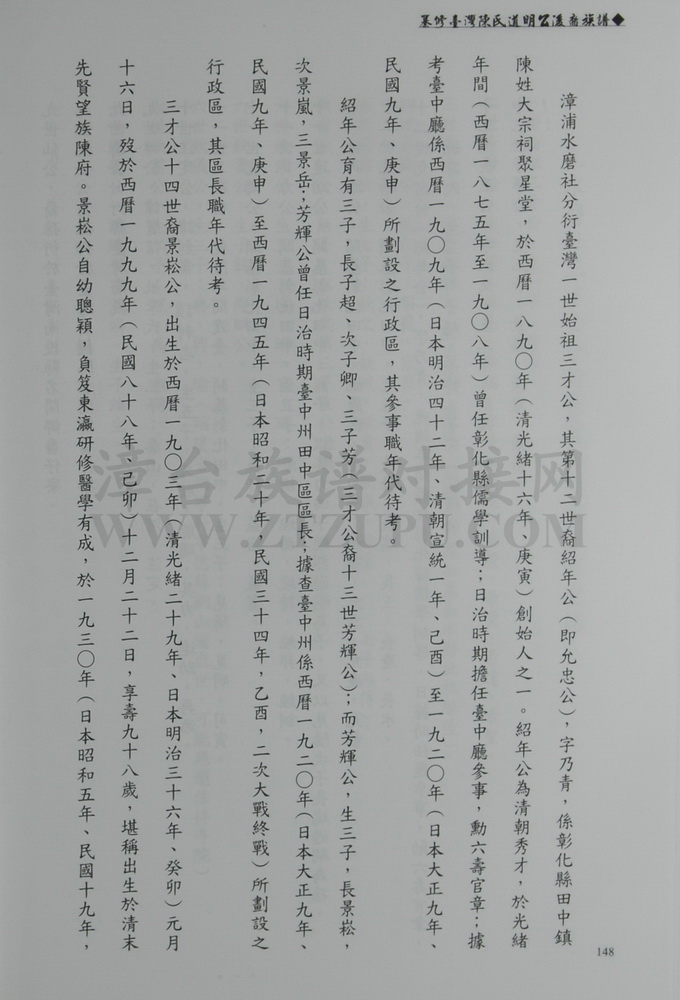 纂修臺灣陳氏道明公渡裔族譜◆
漳浦水磨社分衍臺灣一世始祖三才公，其第十二世裔紹年公（即允忠公），字乃青，係彰化縣田中鎮
陳姓大宗祠聚星堂，於西曆一八九〇年（清光緒十六年、庚寅）創始人之一。紹年公為清朝秀才，於光緒
年間（西曆一八七五年至一九〇八年）曾任彰化縣儒學訓導；日治時期擔任臺中廳參事，勳六壽官章；據
考臺中廳係西曆一九〇九年（日本明治四十二年、清朝宣統一年、己酉）至一九二〇年（日本大正九年、
民國九年、庚申）所劃設之行政區，其參事職年代待考。
紹年公育有三子，長子超、次子卿、三子芳（三才公裔十三世芳輝公）；而芳輝公，生三子，長景崧，
次景嵐，三景岳；芳輝公曾任日治時期臺中州田中區區長；據查臺中州係西曆一九二〇年（日本大正九年、
民國九年、庚申）至西曆一九四五年（日本昭和二十年，民國三十四年，乙酉，二次大戰終戰）所劃設之
行政區，其區長職年代待考。
三才公十四世裔景崧公，出生於西曆一九〇三年（清光緒二十九年、日本明治三十六年、癸卯）元月
十六日，歿於西曆一九九九年（民國八十八年、己卯）十二月二十二日，享壽九十八歲，堪稱出生於清末
先賢望族陳府。景崧公自幼聰穎，負笈東瀛研修醫學有成，於一九三〇年（日本昭和五年、民國十九年，
148
漳台族谱对接网
WWW.ZTZUPU.COM